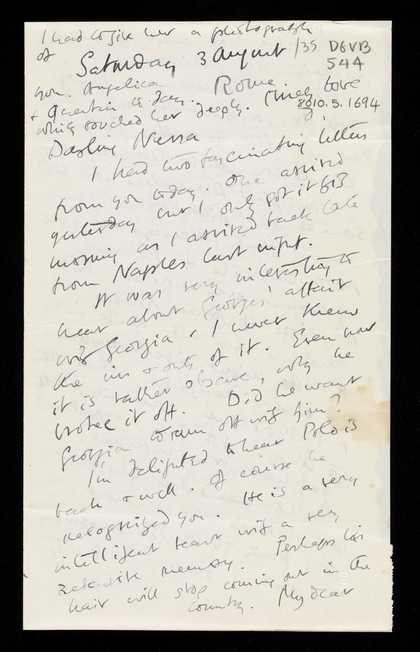 I had to give her a photograph
of
you. Angelica
+ Quentin & Jay.
which touched her deeply. Much love
Saturday 3 August /35
DGVB
544
Rome.
8010.5.1694
Darling Nessa
I had two fascinating letters
from you today. One arrived
yesterday but I only got it this
morning as I arrived back late
from Naples last night.
It was very interesting to
hear about Georges' affair
with Georgia & I never knew
the ins & outs of it. Even now
it is rather obscure, why he
broke it off. Did he want
Georgia to run off with him?
I'm delighted to hear Polo is
back & well. Of course he
recognized you. He is a very
intelligent beast with a very
retentive memory. Perhaps his
hair will stop coming out in the
country. My dear